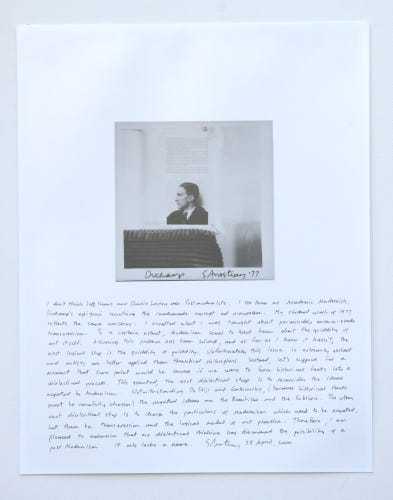 Duchamp S Anastasy '77
I don't think Jeff Koons and Sherrie Levine are Postmodernists. I see them as Academic Modernists,
Duchamp's epigoni the readymade concept ad nauseam. My student work of 1977
reflects the same concerns. I accepted what I was taught about permissible avant-garde
transgression. To a certain extent, Modernism seems to have been about the quiddity of
art itself. Assuming this problem has been solved, and as far as I know it hasn't, the
next logical step is the quiddity of quiddity. Unfortunately this issue is extremely abstract
and artists are better applied than theoretical philosophers. Instead, let's suppose for a
moment that some point would be served if we were to force historical facts into a
dialectical process. This granted, the next dialectical step is to reconsider the ideas
negated by Modernism. Notwithstanding (because historical facts
must be carefully chosen) the negated ideas are the Beautiful and the Sublime. The other
next dialectical step is to choose the particulars of Modernism which need to be negated,
Let these be transgression and the logical model of art practice. Therefore, I am
pleased to announce that my dialectical thinking has discovered the possibility of a
post Modernism. It only lacks a name. 28 April,